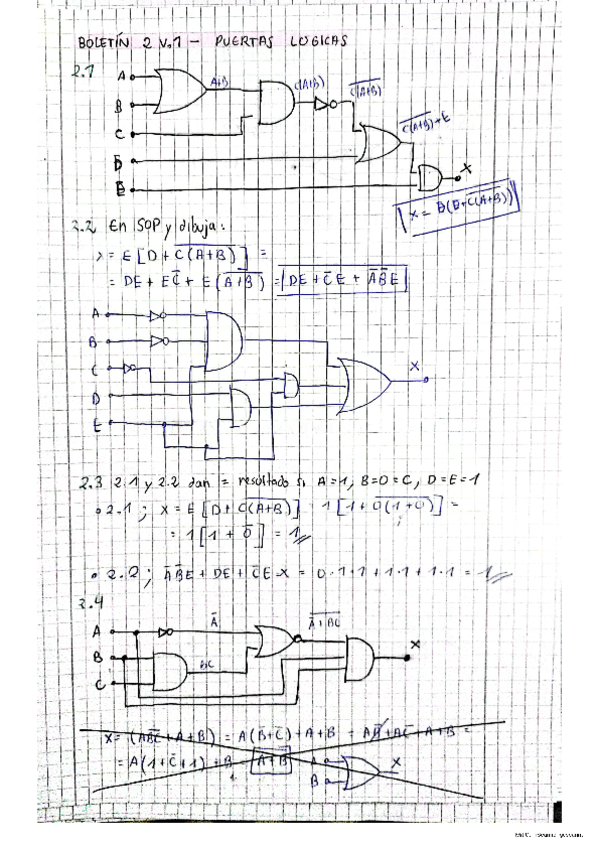 BOLETÍN 2 V.1 - PUERTAS LOGICAS
2.1
A
A+B
C(A+B)
\overline{C(A+B)}
B
\overline{C(A+B)}+E
C
D
X
E
2.2 En SOP y dibuja:
= E[D+\overline{C(A+B)}] =
= DE + E\overline{C} + E(\overline{A+B}) = DE + \overline{C}E + \overline{A}\overline{B}E
A
B
C
X
D
E
2.3 2.1 y 2.2 dan = resultado si A=1, B=0=C, D=E=1
2.1; X = E[D+\overline{C(A+B)}] 1[1+\overline{0(1+0)}] =
= 1[1+\overline{0}] = 1
2.2; \overline{A}\overline{B}E + DE + \overline{C}E = X = 0·1·1+1·1+1·1 = 1
2.4
A
\overline{A}
\overline{\overline{A}+BC}
X
B
BC
C
X = (A\overline{BC}+A+B) = A(\overline{B}+\overline{C})+A+B = A\overline{B}+A\overline{C}+A+B =
= A(1+\overline{C}+1)+B = A+B
A
X
B